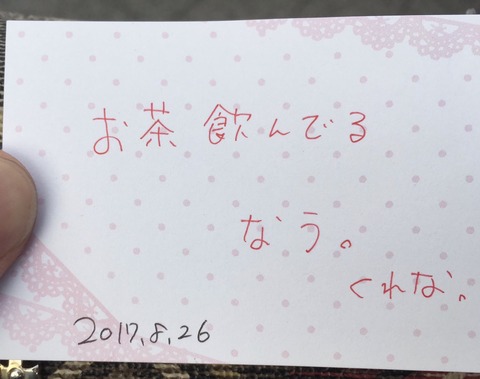 お茶飲んでる
なう。
くれな。
2017.8.26